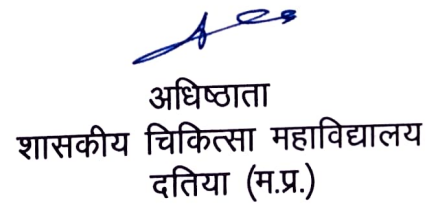 अधिष्ठाता
शासकीय चिकित्सा महाविद्यालय
दतिया (म.प्र.)